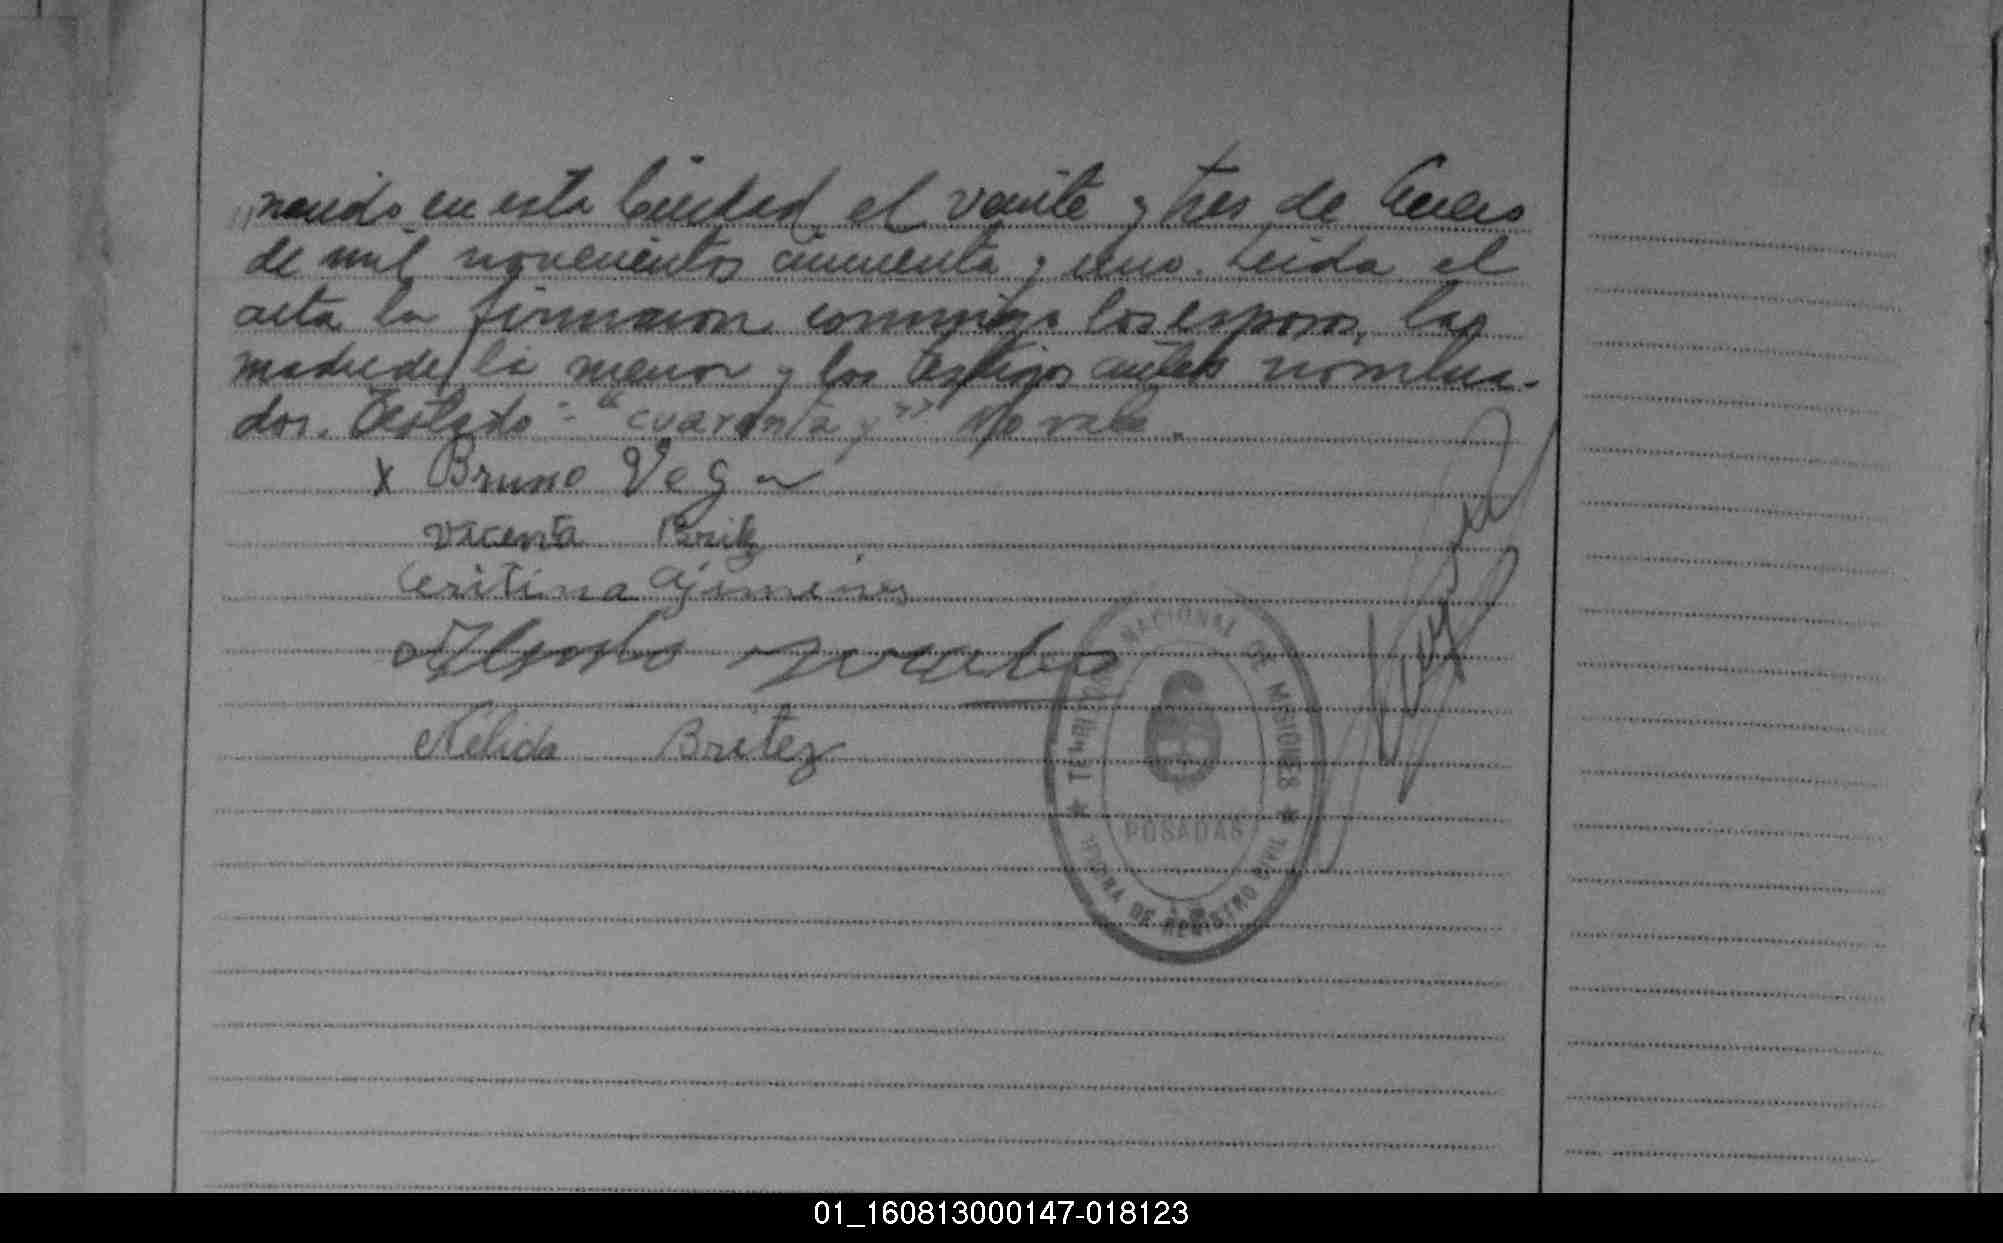 nacido en esta Ciudad el veinte y tres de Enero
de mil novecientos cincuenta y uno. Leida el
acta la firmaron conmigo los esposos, las
madre de la menor y los testigos antes nombra-
dos. Testado: "cuarenta y" No vale.
x Bruno Vega
Vicenta Britz
Ceritina Gimenes
Nelida Britez
TERRITORIO NACIONAL DE MISIONES
POSADAS
DE REGISTRO CIVIL
01_160813000147-018123